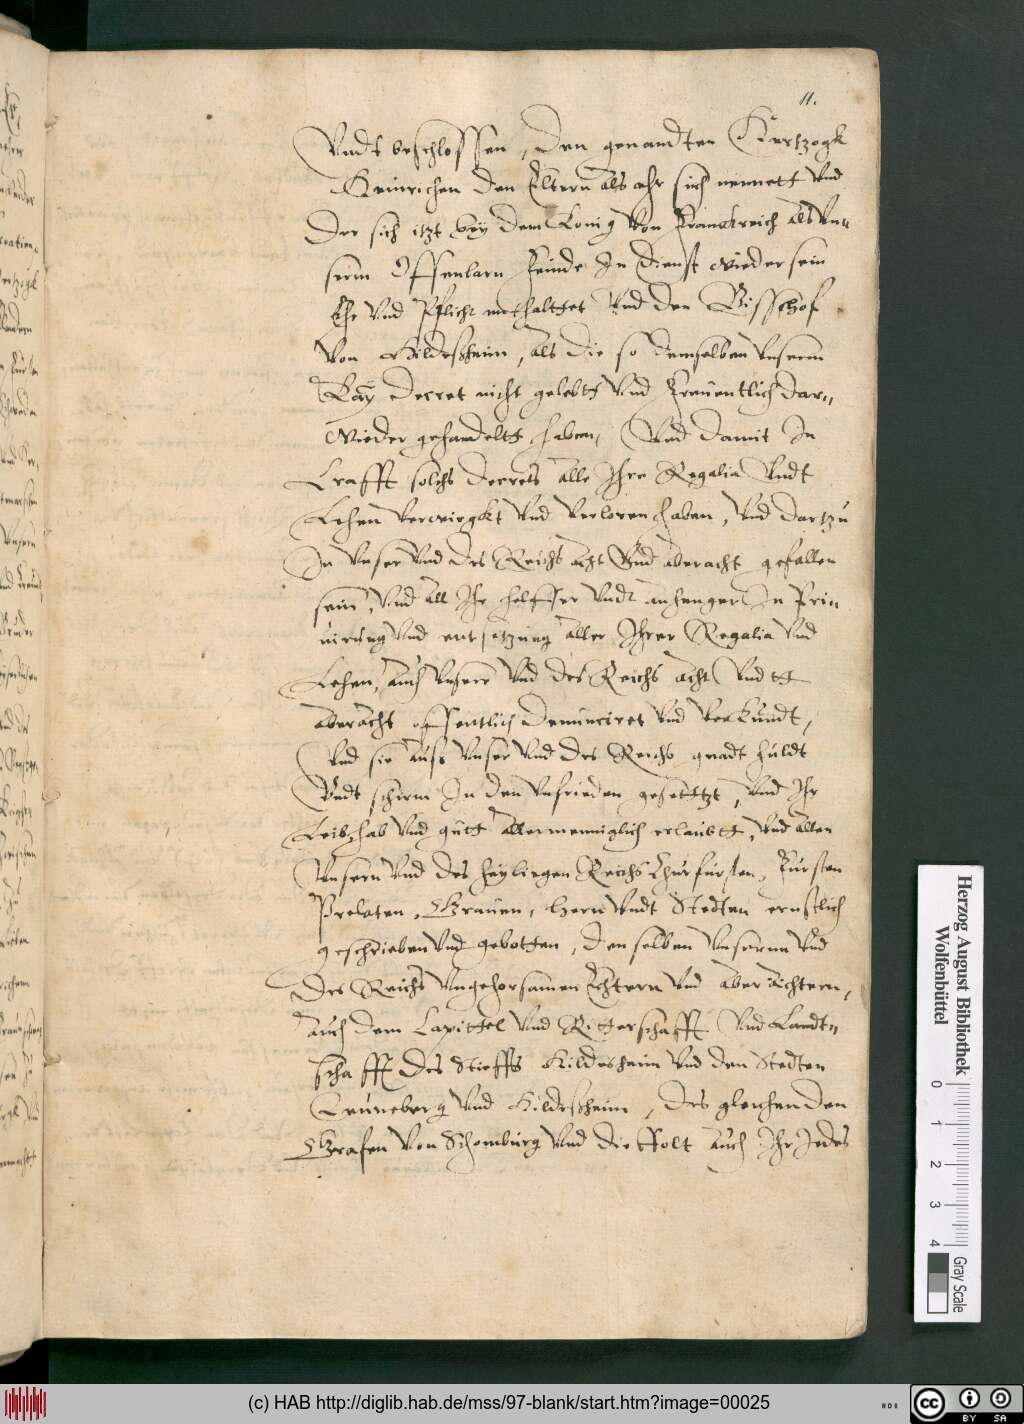 11.
Vndt beschlossen, den genandten Hertzogk
Heinrichen den Eltern als ehr sich nennett vnd
der sich itzt bey dem König von Franckreich als vn„
serm offenbarn Feinde In dienst wieder sein
Ehe vnd Pflicht enthaltet vnd den Bisschof
von Hildeßheim, als die so demselben vnserm
Kay Decret nicht gelebtt vnd freuentlich dar„
wieder gehandeltt haben, Vnd damit In
Crafft solchs decrets alle Ihre Regalia vndt
Lehen verwirgkt vnd verloren haben, vnd dartzu
In vnser vnd des Reichs acht vnd aberacht gefallen
sein, vnd all Ihr helffer vndt anhenger In Priu
uirung vnd entsetzung aller Ihrer Regalia vnd
Lehen, auch vnsere vnd des Reichs acht vndtt
aberacht offentlich denunciret vnd verkundt,
Vnd sie auß vnser vnd des Reichs gnadt huldt
vndt schirm In den vnfrieden gesetttzt, vnd Ihr
Leib, hab vnd gutt allermenniglich erlaubtt, vnd allen
vnsern vnd des heyligen Reichs Churfürsten, Fürsten
Prelaten, Grauen, hern vndt Stedten ernstlich
geschrieben vnd gebotten, denselben vnserm vnd
des Reichs vngehorsamen Echtern vnd aber ächtern,
auch dem Capittel vnd Ritterschafft vnd Landt„
schafft des Stieffts Hildesheim vnd den Stedten
Leuneberg vnd Hildeßheim, des gleichen den
Grafen von Schomburg vnd die Holt auch Ihr Jedes
Herzog August Bibliothek
Wolfenbüttel
0 1 2 3 4
Gray Scale
(c) HAB http://diglib.hab.de/mss/97-blank/start.htm?image=00025
cc BY SA